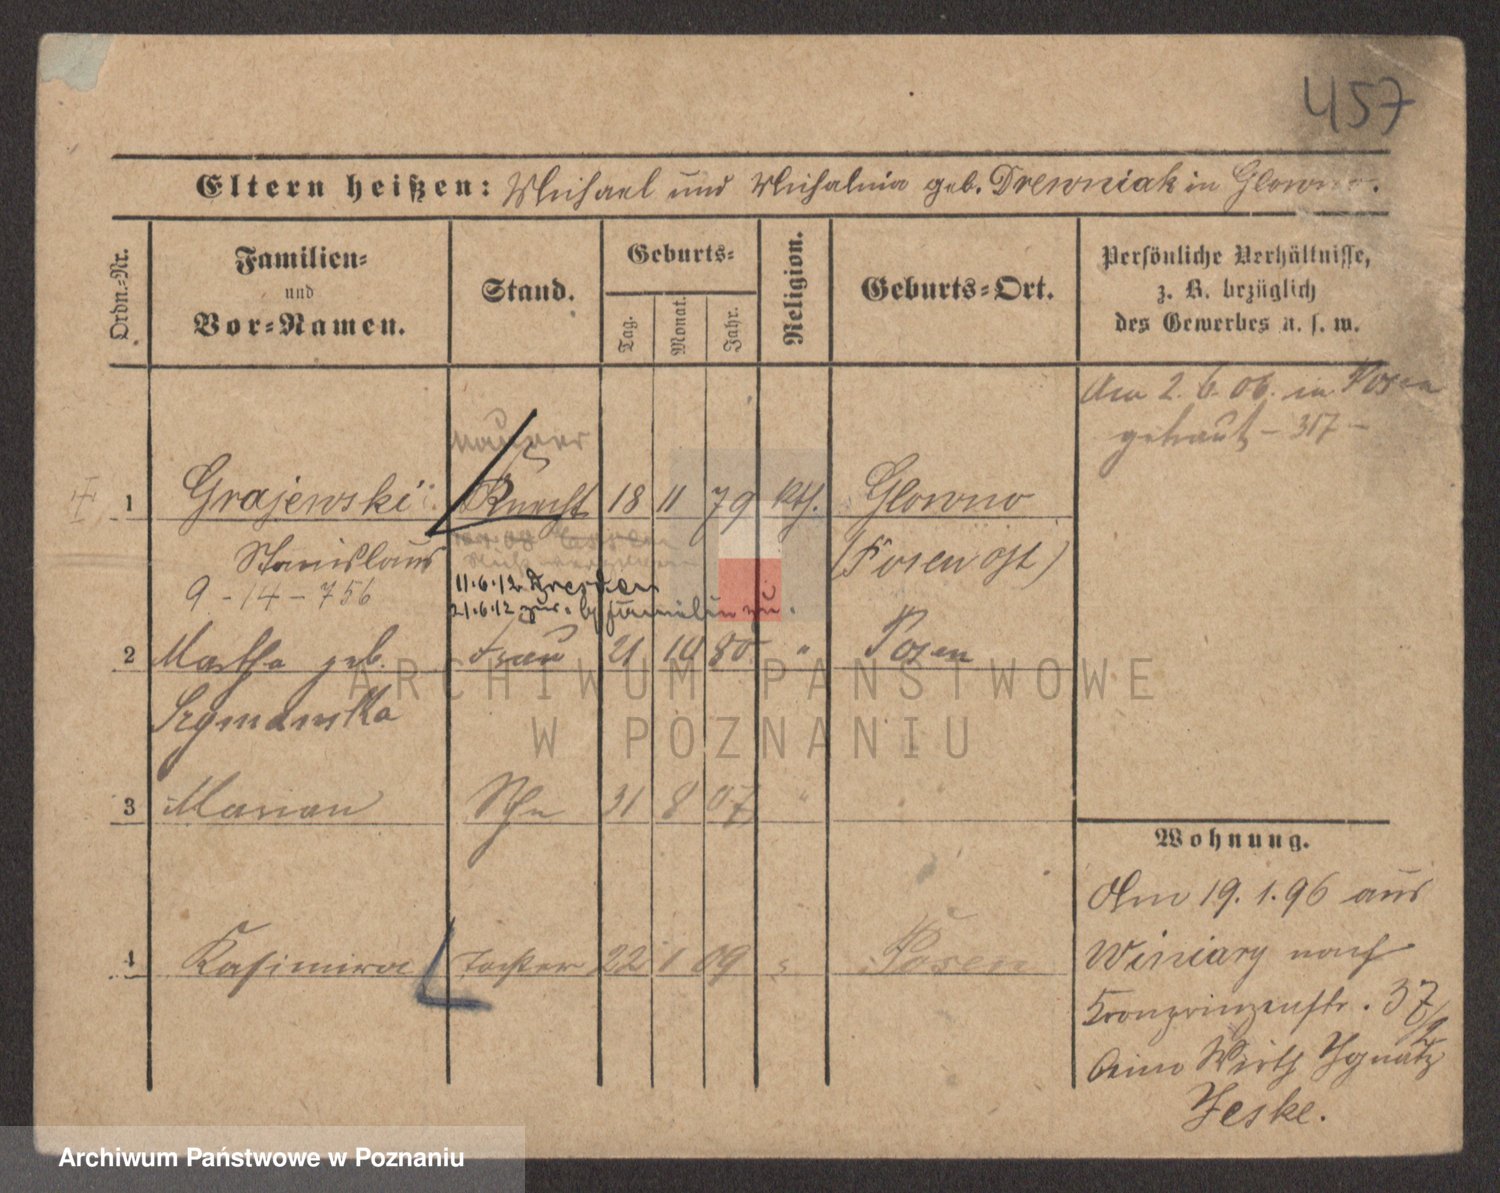 457
Eltern heißen: Michael und Michalina geb. Drewniak in Glowno.
Ordn.-Nr.
Familien-
und
Vor-Namen.
Stand.
Geburts-
Tag.
Monat.
Jahr.
Religion.
Geburts-Ort.
Persönliche Verhältnisse,
z. B. bezüglich
des Gewerbes u. s. w.
Am 2. 6. 06. in Posen
getraut - 317 -
Maurer
1 Grajewski Knecht 18 11 79 kth. Glowno
Stanislaus (Posen Ost)
9 - 14 - 756
11.6.12 Dresden
21.6.12 zur. Familie zu.
2 Martha geb. Frau 21 10 80 " Posen
Szymanska
3 Marian Sohn 31 8 07 "
4 Kasimira Tochter 22 1 09 " Posen
Wohnung.
Am 19. 1. 96 aus
Winiary nach
Kronprinzenstr. 37/
beim Wirth Ignatz
Jeske.
ARCHIWUM PAŃSTWOWE
W POZNANIU
Archiwum Państwowe w Poznaniu